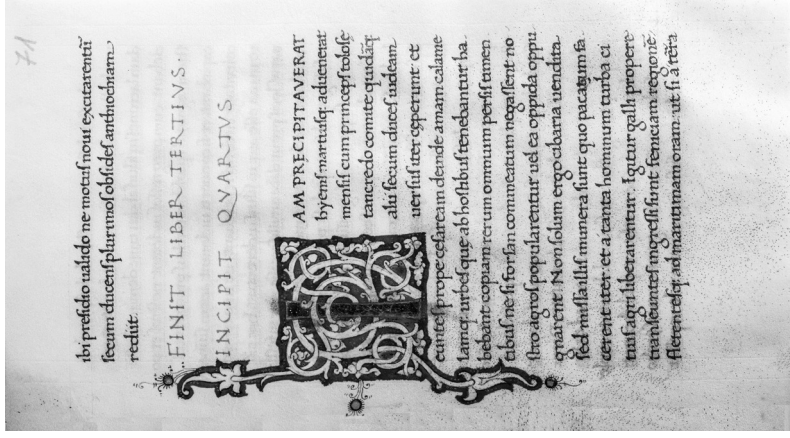 71
ibi presidio ualido ne motus noui excitarentur
secum ducens plurimos obsides anthiochiam
rediit.
FINIT LIBER TERTIVS.
INCIPIT QVARTVS
IAM PRECIPITAVERAT
hyems martiusq; aduenerat
mensis cum princeps tolose
tancredo comite quidāq;
alii secum duces iudeam
uersus iter ceperunt et
euntes prope cesaream deinde amam calame
lamq; urbes que ab hostibus tenebantur ha
bebant copiam rerum omnium persis timen
tibus ne si forsan commeatum negassent no
stro agros popularentur uel ea oppida oppu
gnarent. Non solum ergo cibaria uendita
sed missa illis munera sunt quo pacatum fa
cerent iter. et a tanta hominum turba ci
tius agri liberarentur. Igitur galli propere
transeuntes ingressi sunt feniciam regionē
flerentesq; ad maritimam oram. ut si a terra